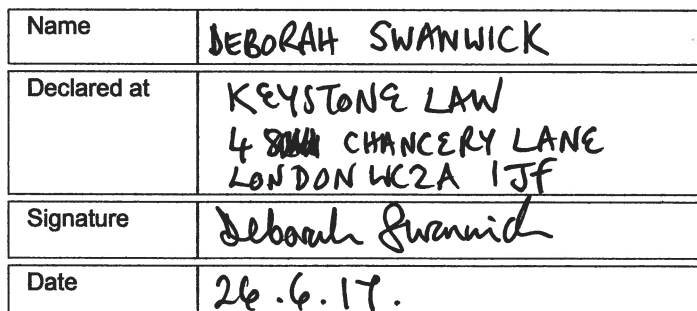 Name DEBORAH SWANWICK
Declared at KEYSTONE LAW
4 CHANCERY LANE
LONDON WC2A 1JF
Signature Deborah Swanwick
Date 26.6.17.